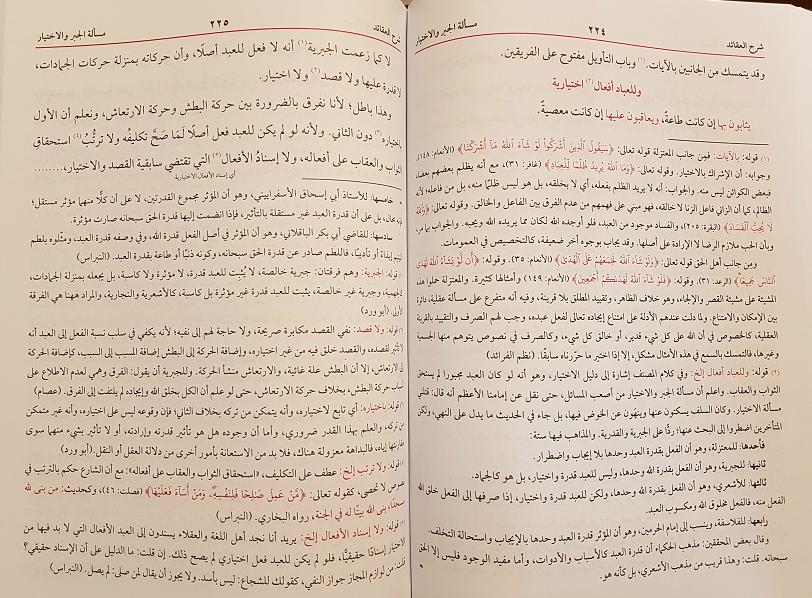 شرح العقائد ٢٢٤ مسألة الجبر والاختيار
وقد يتمسك من الجانبين بالآيات.(١) وباب التأويل مفتوح على الفريقين.
وللعباد أفعال(٢) اختيارية
يثابون بها إن كانت طاعةً، ويعاقبون عليها إن كانت معصيةً.
(١) قوله: بالآيات: فمن جانب المعتزلة قوله تعالى: ﴿سَيَقُولُ الَّذِينَ أَشْرَكُوا لَوْ شَاءَ اللَّهُ مَا أَشْرَكْنَا﴾ (الأنعام: ١٤٨).
وجوابه: أن الإشراك بالاختيار. وقوله تعالى: ﴿وَمَا اللَّهُ يُرِيدُ ظُلْمًا لِلْعِبَادِ﴾ (غافر: ٣١)، مع أنه يظلم بعضهم بعضا،
فبعض الكوائن ليس منه. والجواب: أنه لا يريد الظلم بفعله، أي لا يخلقه، بل هو خلق ليس ظلمًا منه، بل من فاعله؛ لأنه
الظالم، كما أن الزاني فاعل الزنا لا خالقه، فهو مبني على فهمهم من عدم الفرق بين الفاعل والخالق. وقوله تعالى: ﴿وَاللَّهُ
لَا يُحِبُّ الْفَسَادَ﴾ (البقرة: ٢٠٥)، والفساد موجود من العبد، فلو أوجده الله لكان مما يريده الله ويحبه. والجواب بما مر،
وبأن الحب ملازم الرضا لا الإرادة على أصلها. وقد يجاب بوجوه أخر ضعيفة، كالتخصيص في العمومات.
ومن جانب أهل الحق قوله تعالى: ﴿وَلَوْ شَاءَ اللَّهُ لَجَمَعَهُمْ عَلَى الْهُدَى﴾ (الأنعام: ٣٥). وقوله: ﴿أَنْ لَوْ يَشَاءُ اللَّهُ لَهَدَى
النَّاسَ جَمِيعًا﴾ (الرعد: ٣١). وقوله: ﴿فَلَوْ شَاءَ لَهَدَاكُمْ أَجْمَعِينَ﴾ (الأنعام: ١٤٩) وأمثالها كثيرة. والمعتزلة حملوا هذه
المشيئة على مشيئة القسر والإلجاء، وهو خلاف الظاهر، وتقييد المطلق بلا قرينة، وفيه أنه متفرع على مسألة عقلية، دائرة
بين الإمكان والامتناع. ولما دلت عندهم الأدلة على امتناع إيجاده تعالى لفعل عبده، وجب لهم الصرف والتقييد بالقرينة
العقلية، كالخصوص في أن الله على كل شيء قدير، أو خالق كل شيء، وكالصرف في نصوص يتوهم منها الجسمية
وغيرها، فالتمسك بالسمع في هذه الأمثال مشكل، إلا إذا اختير ما حررناه سابقًا. (نظم الفرائد)
(٢) قوله: وللعباد أفعال إلخ: وفي كلام المصنف إشارة إلى دليل الاختيار، وهو أنه لو كان العبد مجبورا لم يستحق
الثواب والعقاب. واعلم أن مسألة الجبر والاختيار من أصعب المسائل، حتى نقل عن إمامنا الأعظم أنه قال: قتلتني
مسألة الاختيار. وكان السلف يسكتون عنها وينهون عن الخوض فيها، بل جاء في الحديث ما يدل على النهي، ولكن
المتأخرين اضطروا إلى البحث عنها؛ ردًّا على الجبرية والقدرية. والمذاهب فيها ستة:
فأحدها: للمعتزلة، وهو أن الفعل بقدرة العبد وحدها بلا إيجاب واضطرار.
ثانيها: للجبرية، وهو أن الفعل بقدرة الله وحدها، وليس للعبد قدرة واختيار، بل هو كالجماد.
ثالثها: للأشعري، وهو أن الفعل بقدرة الله وحدها، ولكن للعبد قدرة واختيار، إذا صرفها إلى الفعل خلق الله
الفعل منه، فالفعل مخلوق الله ومكسوب العبد.
رابعها: للفلاسفة، وينسب إلى إمام الحرمين، وهو أن المؤثر قدرة العبد وحدها بالإيجاب واستحالة التخلف.
وقال بعض المحققين: مذهب الحكام أن قدرة العبد كالأسباب والأدوات، وأما مفيد الوجود فليس إلا الحق
سبحانه. قلت: وهذا قريب من مذهب الأشعري، بل كأنه هو.
شرح العقائد ٢٢٥ مسألة الجبر والاختيار
لا كما زعمت الجبرية(١) أنه لا فعل للعبد أصلًا، وأن حركاته بمنزلة حركات الجمادات،
لا قدرة عليها ولا قصد(٢) ولا اختيار.
وهذا باطل؛ لأنا نفرق بالضرورة بين حركة البطش وحركة الارتعاش، ونعلم أن الأول
باختياره(٣) دون الثاني. ولأنه لو لم يكن للعبد فعل أصلًا لَمَا صَحَّ تكليفُه ولا ترتُّبُ(٤) استحقاق
الثواب والعقاب على أفعاله، ولا إسنادُ الأفعال(٥) التي تقتضي سابقية القصد والاختيار،........
أي إسناد الأفعال الاختيارية
خامسها: للأستاذ أبي إسحاق الأسفراييني، وهو أن المؤثر مجموع القدرتين، لا على أن كلًّا منهما مؤثر مستقل؛
فإنه محال، بل على أن قدرة العبد غير مستقلة بالتأثير، فإذا انضمت إليها قدرة الحق سبحانه صارت مؤثرة.
سادسها: للقاضي أبي بكر الباقلاني، وهو أن المؤثر في أصل الفعل قدرة الله، وفي وصفه قدرة العبد، ومثّلوه بلطم
اليتيم إيذاءً أو تأديبًا، فاللطم صادر عن قدرة الحق سبحانه، وكونه ذنبًا أو طاعة بقدرة العبد. (النبراس)
قوله: الجبرية: وهم فرقتان: جبرية خالصة، لا يُثبت للعبد قدرة، لا مؤثرة ولا كاسبة، بل يجعله بمنزلة الجمادات،
كالجهمية، وجبرية غير خالصة، يثبت للعبد قدرة غير مؤثرة بل كاسبة، كالأشعرية والنجارية، والمراد ههنا هي الفرقة
الأولى. (أبو ورد)
قوله: ولا قصد: نفي القصد مكابرة صريحة، ولا حاجة لهم إلى نفيه؛ لأنه يكفي في سلب نسبة الفعل إلى العبد أنه
لا تأثير لقصده، والقصد خلق فيه من غير اختياره، وإضافة الحركة إلى البطش إضافة المسبب إلى السبب، كإضافة الحركة
إلى الارتعاش، إلا أن البطش علة غائية، والارتعاش منشأ الحركة. وللجبرية أن يقول: الفرق وهمي لعدم الاطلاع على
أسباب حركة البطش، بخلاف حركة الارتعاش، حتى لو علم أن الكل بخلق الله وإيجاده لم يلتفت إلى الفرق. (عصام)
قوله: باختياره: أي تابع لاختياره، وأنه يتمكن من تركه بخلاف الثاني؛ فإن وقوعه ليس على اختياره، وأنه غير متمكن
من تركه، والعلم بهذا القدر ضروري، وأما أن وجوده هل هو تأثير قدرته وإرادته، أو لا تأثير بشيء منهما سوى
مقارنتها إياه، فالبداهة معزولة هناك، فلا بد من الاستعانة بأمور أخرى من دلالة العقل أو النقل. (أبو ورد)
قوله: ولا ترتب إلخ: عطف على التكليف، «استحقاق الثواب والعقاب على أفعاله»: مع أن الشارع حكم بالترتب في
نصوص لا تحصى، كقوله تعالى: ﴿مَنْ عَمِلَ صَالِحًا فَلِنَفْسِهِ وَمَنْ أَسَاءَ فَعَلَيْهَا﴾ (فصلت: ٤٦)، وكحديث: من بنى لله
مسجدًا، بنى الله بيتًا له في الجنة، رواه البخاري. (النبراس)
قوله: ولا إسناد الأفعال إلخ: يريد أنا نجد أهل اللغة والعقلاء يسندون إلى العبد الأفعال التي لا بد فيها من
الاختيار إسنادًا حقيقيًّا، فلو لم يكن للعبد فعل اختياري لم يصح ذلك. إن قلت: ما الدليل على أن الإسناد حقيقي؟
قلت: من لوازم المجاز جواز النفي، كقولك للشجاع: ليس بأسد. ولا يجوز أن يقال لمن صلى: لم يصل. (النبراس)